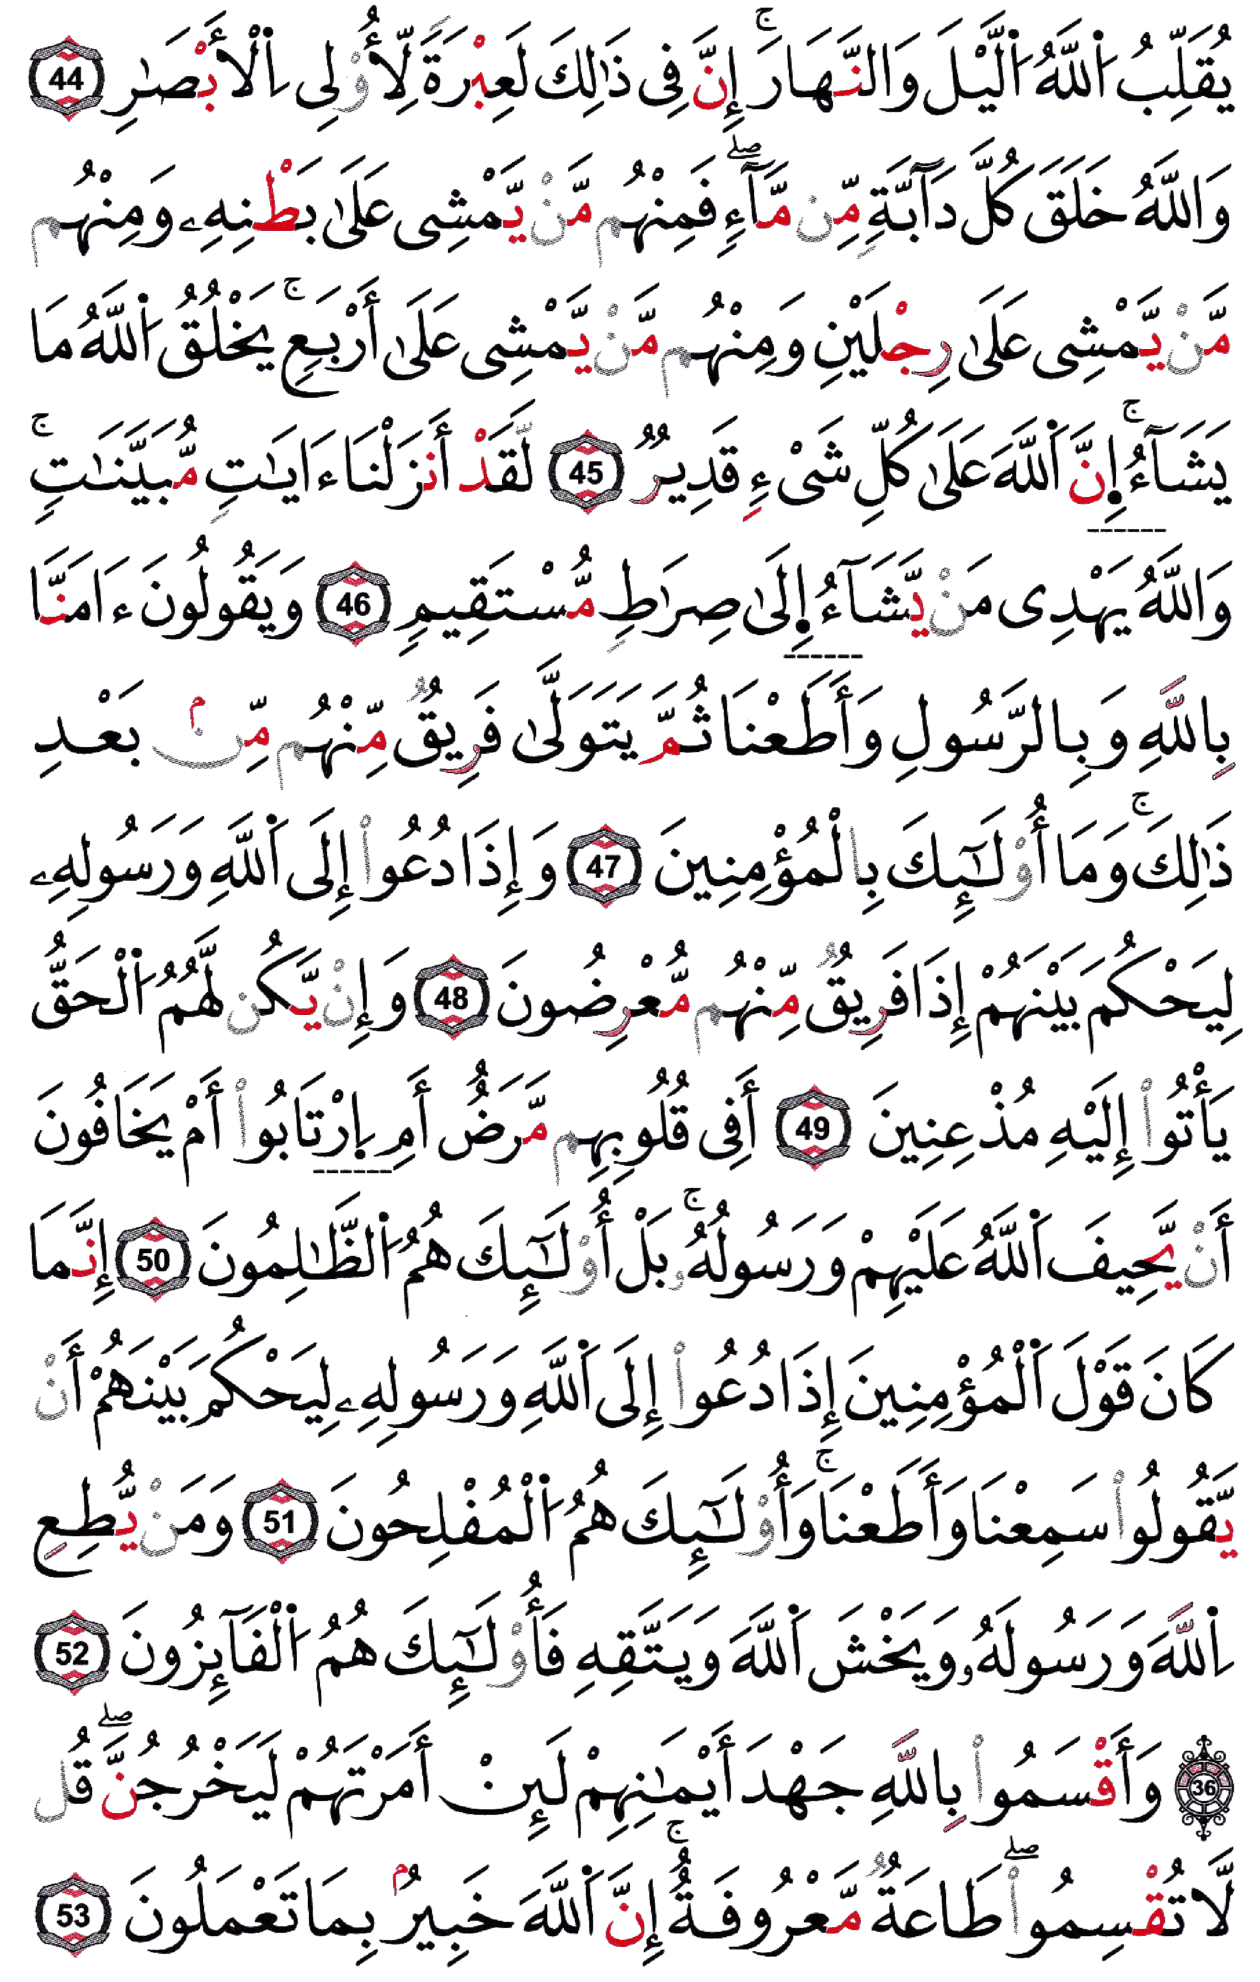 يُقَلِّبُ اُ۬للَّهُ اُ۬لَّيْلَ وَالنَّهَارَۚ إِنَّ فِى ذَٰلِكَ لَعِبْرَةً لِّأُوْلِى اِ۬لْأَبْصَٰرِ 44
وَاللَّهُ خَلَقَ كُلَّ دَآبَّةٍ مِّن مَّآءٍۖ فَمِنْهُم مَّنْ يَّمْشِى عَلَىٰ بَطْنِهِۦ وَمِنْهُم
مَّنْ يَّمْشِى عَلَىٰ رِجْلَيْنِ وَمِنْهُم مَّنْ يَّمْشِى عَلَىٰ أَرْبَعٍۚ يَخْلُقُ اُ۬للَّهُ مَا
يَشَآءُۚ اِ۪نَّ اَ۬للَّهَ عَلَىٰ كُلِّ شَىْءٍ قَدِيرٌ 45 لَّقَدْ أَنزَلْنَا ءَايَٰتٍ مُّبَيَّنَٰتٍۚ
وَاللَّهُ يَهْدِى مَنْ يَّشَآءُ اِ۪لَىٰ صِرَٰطٍ مُّسْتَقِيمٍ 46 وَيَقُولُونَ ءَامَنَّا
بِاللَّهِ وَبِالرَّسُولِ وَأَطَعْنَا ثُمَّ يَتَوَلَّىٰ فَرِيقٌ مِّنْهُم مِّنۢ بَعْدِ
ذَٰلِكَۚ وَمَا أُوْلَٰٓئِكَ بِالْمُؤْمِنِينَ 47 وَإِذَا دُعُواْ إِلَى اَ۬للَّهِ وَرَسُولِهِۦ
لِيَحْكُمَ بَيْنَهُمْ إِذَا فَرِيقٌ مِّنْهُم مُّعْرِضُونَ 48 وَإِنْ يَّكُن لَّهُمُ اُ۬لْحَقُّ
يَأْتُواْ إِلَيْهِ مُذْعِنِينَ 49 أَفِى قُلُوبِهِم مَّرَضٌ أَمِ اِ۪رْتَابُواْ أَمْ يَخَافُونَ
أَنْ يَّحِيفَ اَ۬للَّهُ عَلَيْهِمْ وَرَسُولُهُۥۚ بَلْ أُوْلَٰٓئِكَ هُمُ اُ۬لظَّٰلِمُونَ 50 إِنَّمَا
كَانَ قَوْلَ اَ۬لْمُؤْمِنِينَ إِذَا دُعُواْ إِلَى اَ۬للَّهِ وَرَسُولِهِۦ لِيَحْكُمَ بَيْنَهُمْ أَنْ
يَّقُولُواْ سَمِعْنَا وَأَطَعْنَاۚ وَأُوْلَٰٓئِكَ هُمُ اُ۬لْمُفْلِحُونَ 51 وَمَنْ يُّطِعِ
اِ۬للَّهَ وَرَسُولَهُۥ وَيَخْشَ اَ۬للَّهَ وَيَتَّقِهِ فَأُوْلَٰٓئِكَ هُمُ اُ۬لْفَآئِزُونَ 52
36 وَأَقْسَمُواْ بِاللَّهِ جَهْدَ أَيْمَٰنِهِمْ لَئِنْ أَمَرْتَهُمْ لَيَخْرُجُنَّۖ قُل
لَّا تُقْسِمُواْۖ طَاعَةٌ مَّعْرُوفَةٌۚ إِنَّ اَ۬للَّهَ خَبِيرُۢ بِمَا تَعْمَلُونَ 53